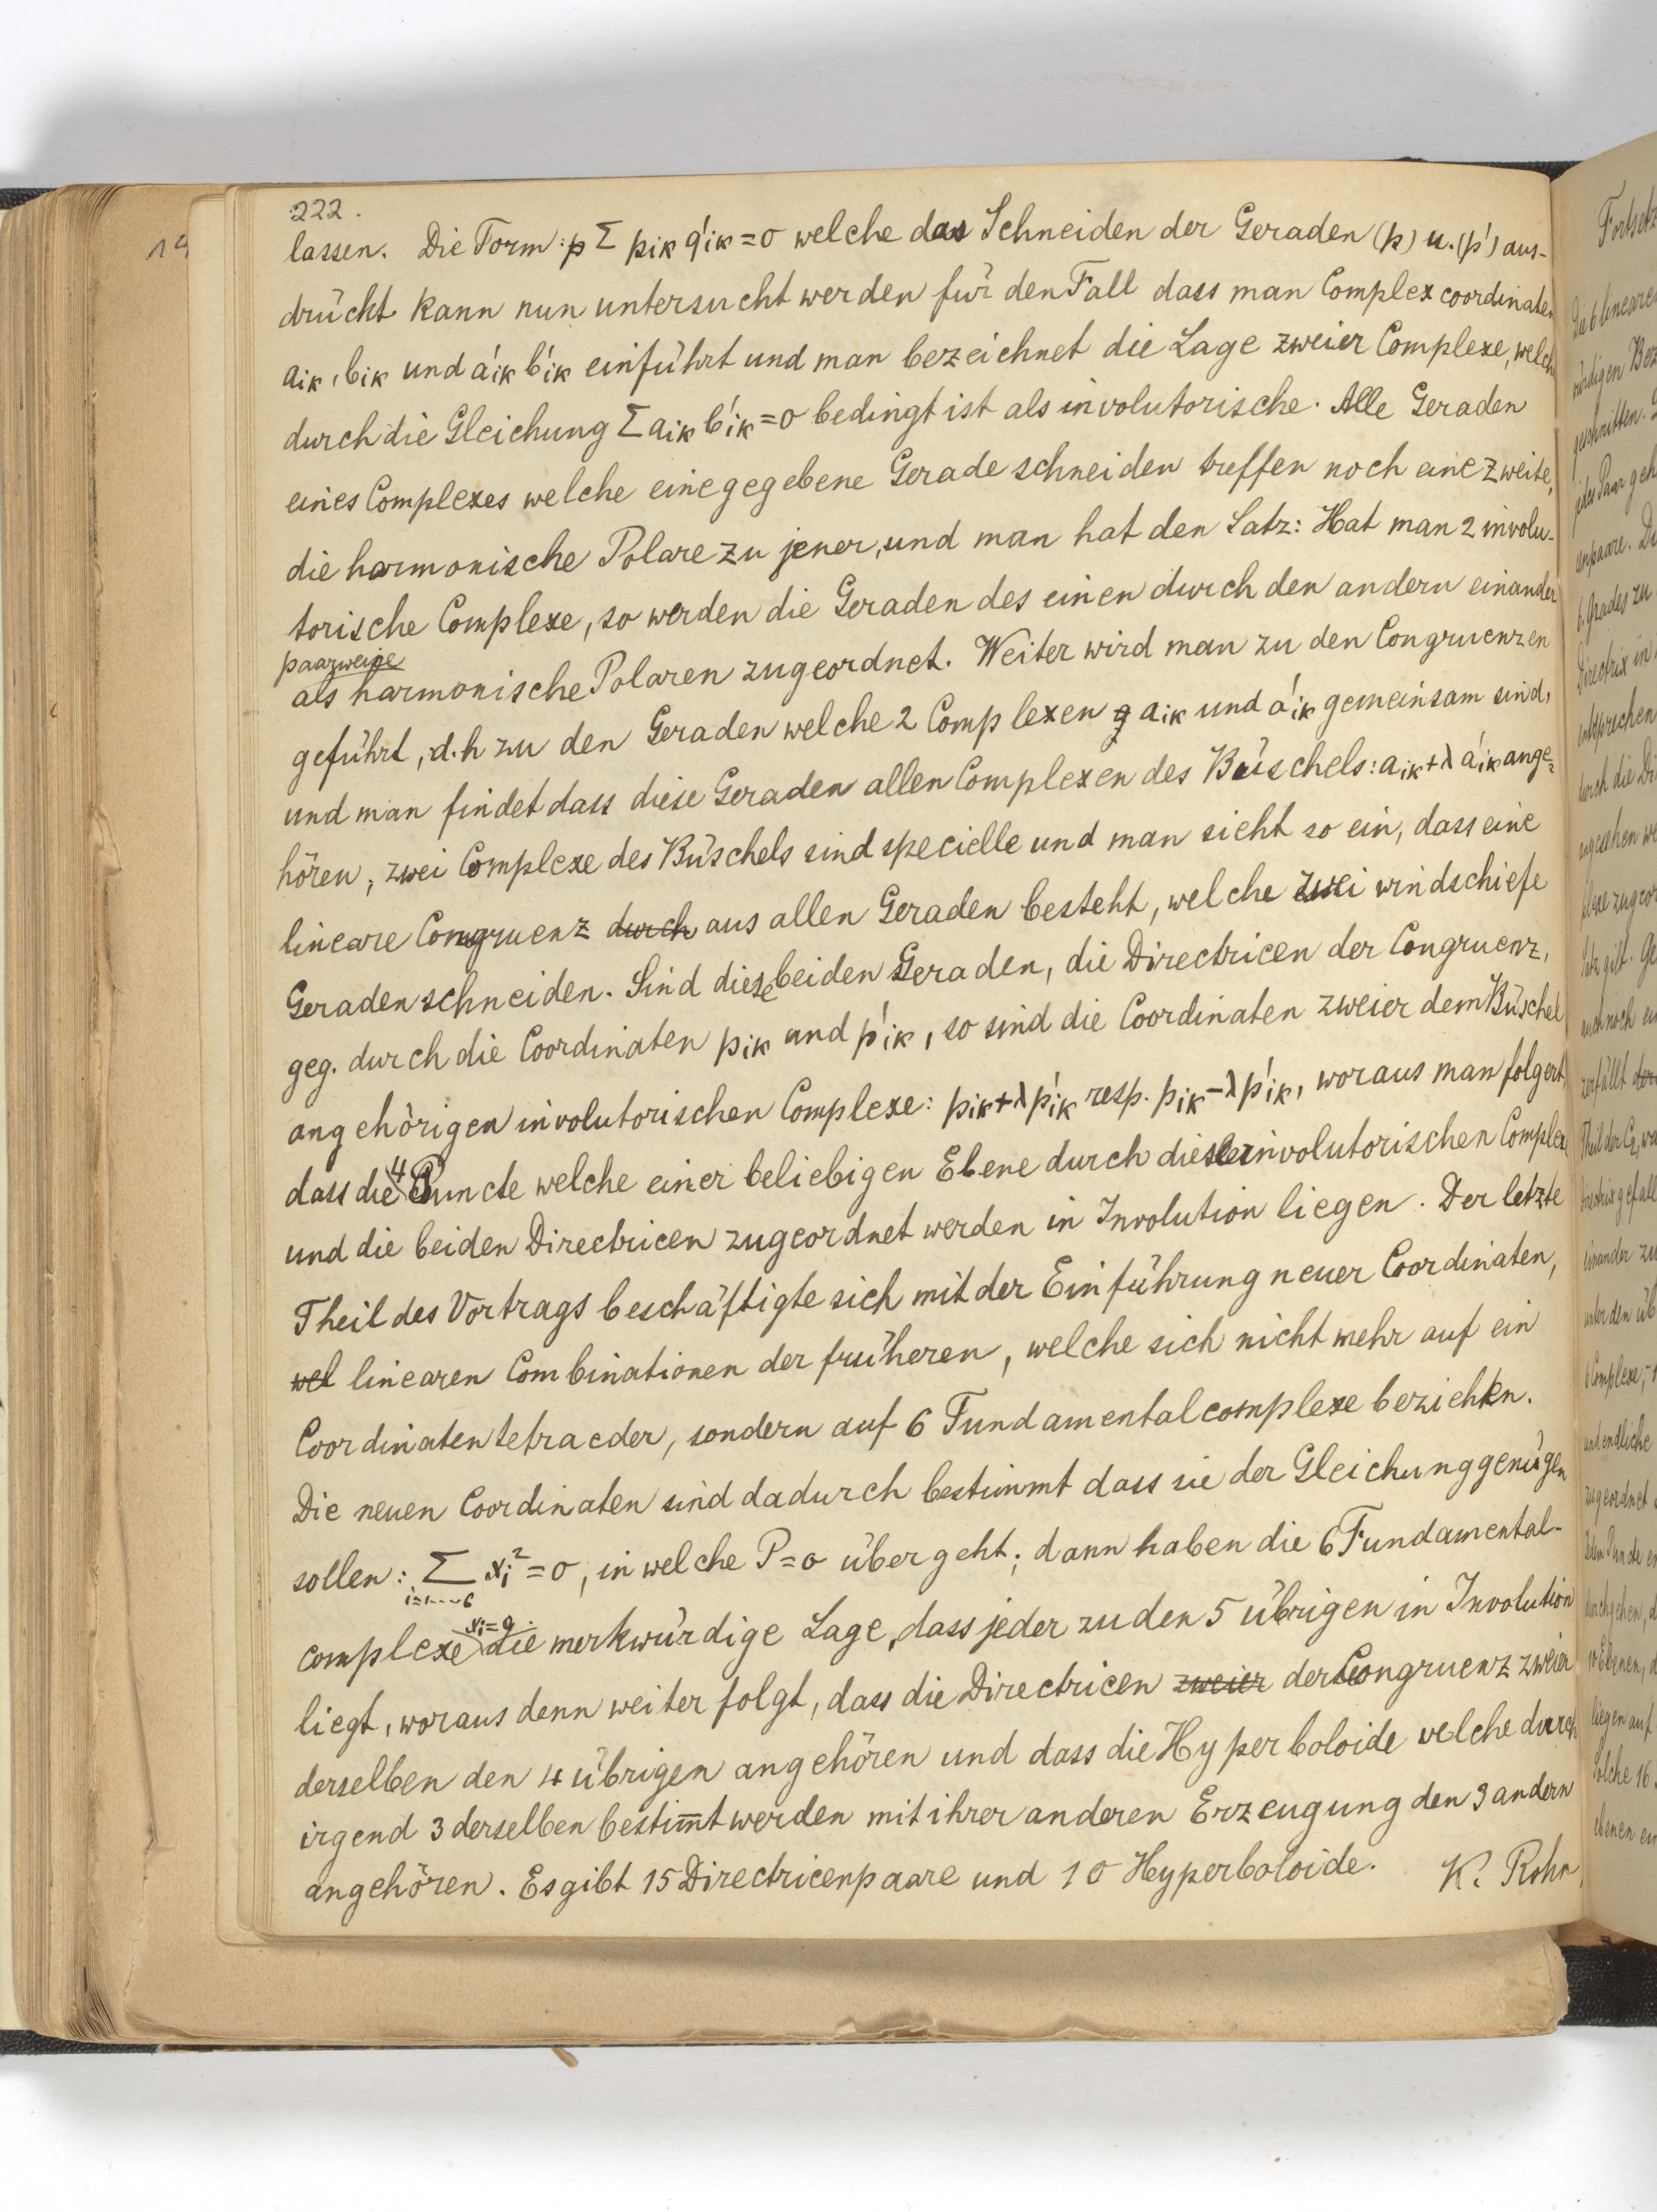 222.
lassen. Die Form: p Σ pik q'ik = 0 welche das Schneiden der Geraden (p) u. (p') aus-
drückt kann nun untersucht werden für den Fall dass man Complexcoordinaten
aik, bik und a'ik b'ik einführt und man bezeichnet die Lage zweier Complexe, welche
durch die Gleichung Σ aik b'ik = 0 bedingt ist als involutorische. Alle Geraden
eines Complexes welche eine gegebene Gerade schneiden treffen noch eine zweite,
die harmonische Polare zu jener, und man hat den Satz: Hat man 2 involu-
torische Complexe, so werden die Geraden des einen durch den andern einander
paarweise
als harmonische Polaren zugeordnet. Weiter wird man zu den Congruenzen
geführt, d.h zu den Geraden welche 2 Complexen aik und a'ik gemeinsam sind,
und man findet dass diese Geraden allen Complexen des Büschels: aik + λ a'ik ange=
hören; zwei Complexe des Büschels sind specielle und man sieht so ein, dass eine
lineare Congruenz durch aus allen Geraden besteht, welche zwei windschiefe
Geraden schneiden. Sind diese beiden Geraden, die Directricen der Congruenz,
geg. durch die Coordinaten pik und p'ik, so sind die Coordinaten zweier dem Büschel
angehörigen involutorischen Complexe: pik + λ p'ik resp. pik - λ p'ik, woraus man folgert
dass die 4 Puncte welche einer beliebigen Ebene durch diese involutorischen Complexe
und die beiden Directricen zugeordnet werden in Involution liegen. Der letzte
Theil des Vortrags beschäftigte sich mit der Einführung neuer Coordinaten,
wel linearen Combinationen der früheren, welche sich nicht mehr auf ein
Coordinatentetraeder, sondern auf 6 Fundamentalcomplexe beziehen.
Die neuen Coordinaten sind dadurch bestimmt dass sie der Gleichung genügen
sollen: Σ xi² = 0, in welche P = 0 übergeht; dann haben die 6 Fundamental-
i=1...6
xi=0
complexe die merkwürdige Lage, dass jeder zu den 5 übrigen in Involution
liegt, woraus denn weiter folgt, dass die Directricen zweier der Congruenz zweier
derselben den 4 übrigen angehören und dass die Hyperboloide welche durch
irgend 3 derselben bestim̅t werden mit ihrer anderen Erzeugung den 3 andern
angehören. Es gibt 15 Directricenpaare und 10 Hyperboloide. K. Rohn